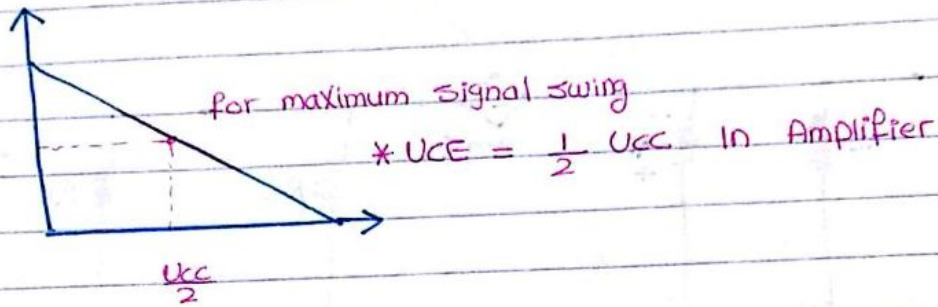 for maximum signal swing
* UCE = 1/2 UCC In Amplifier
UCC/2